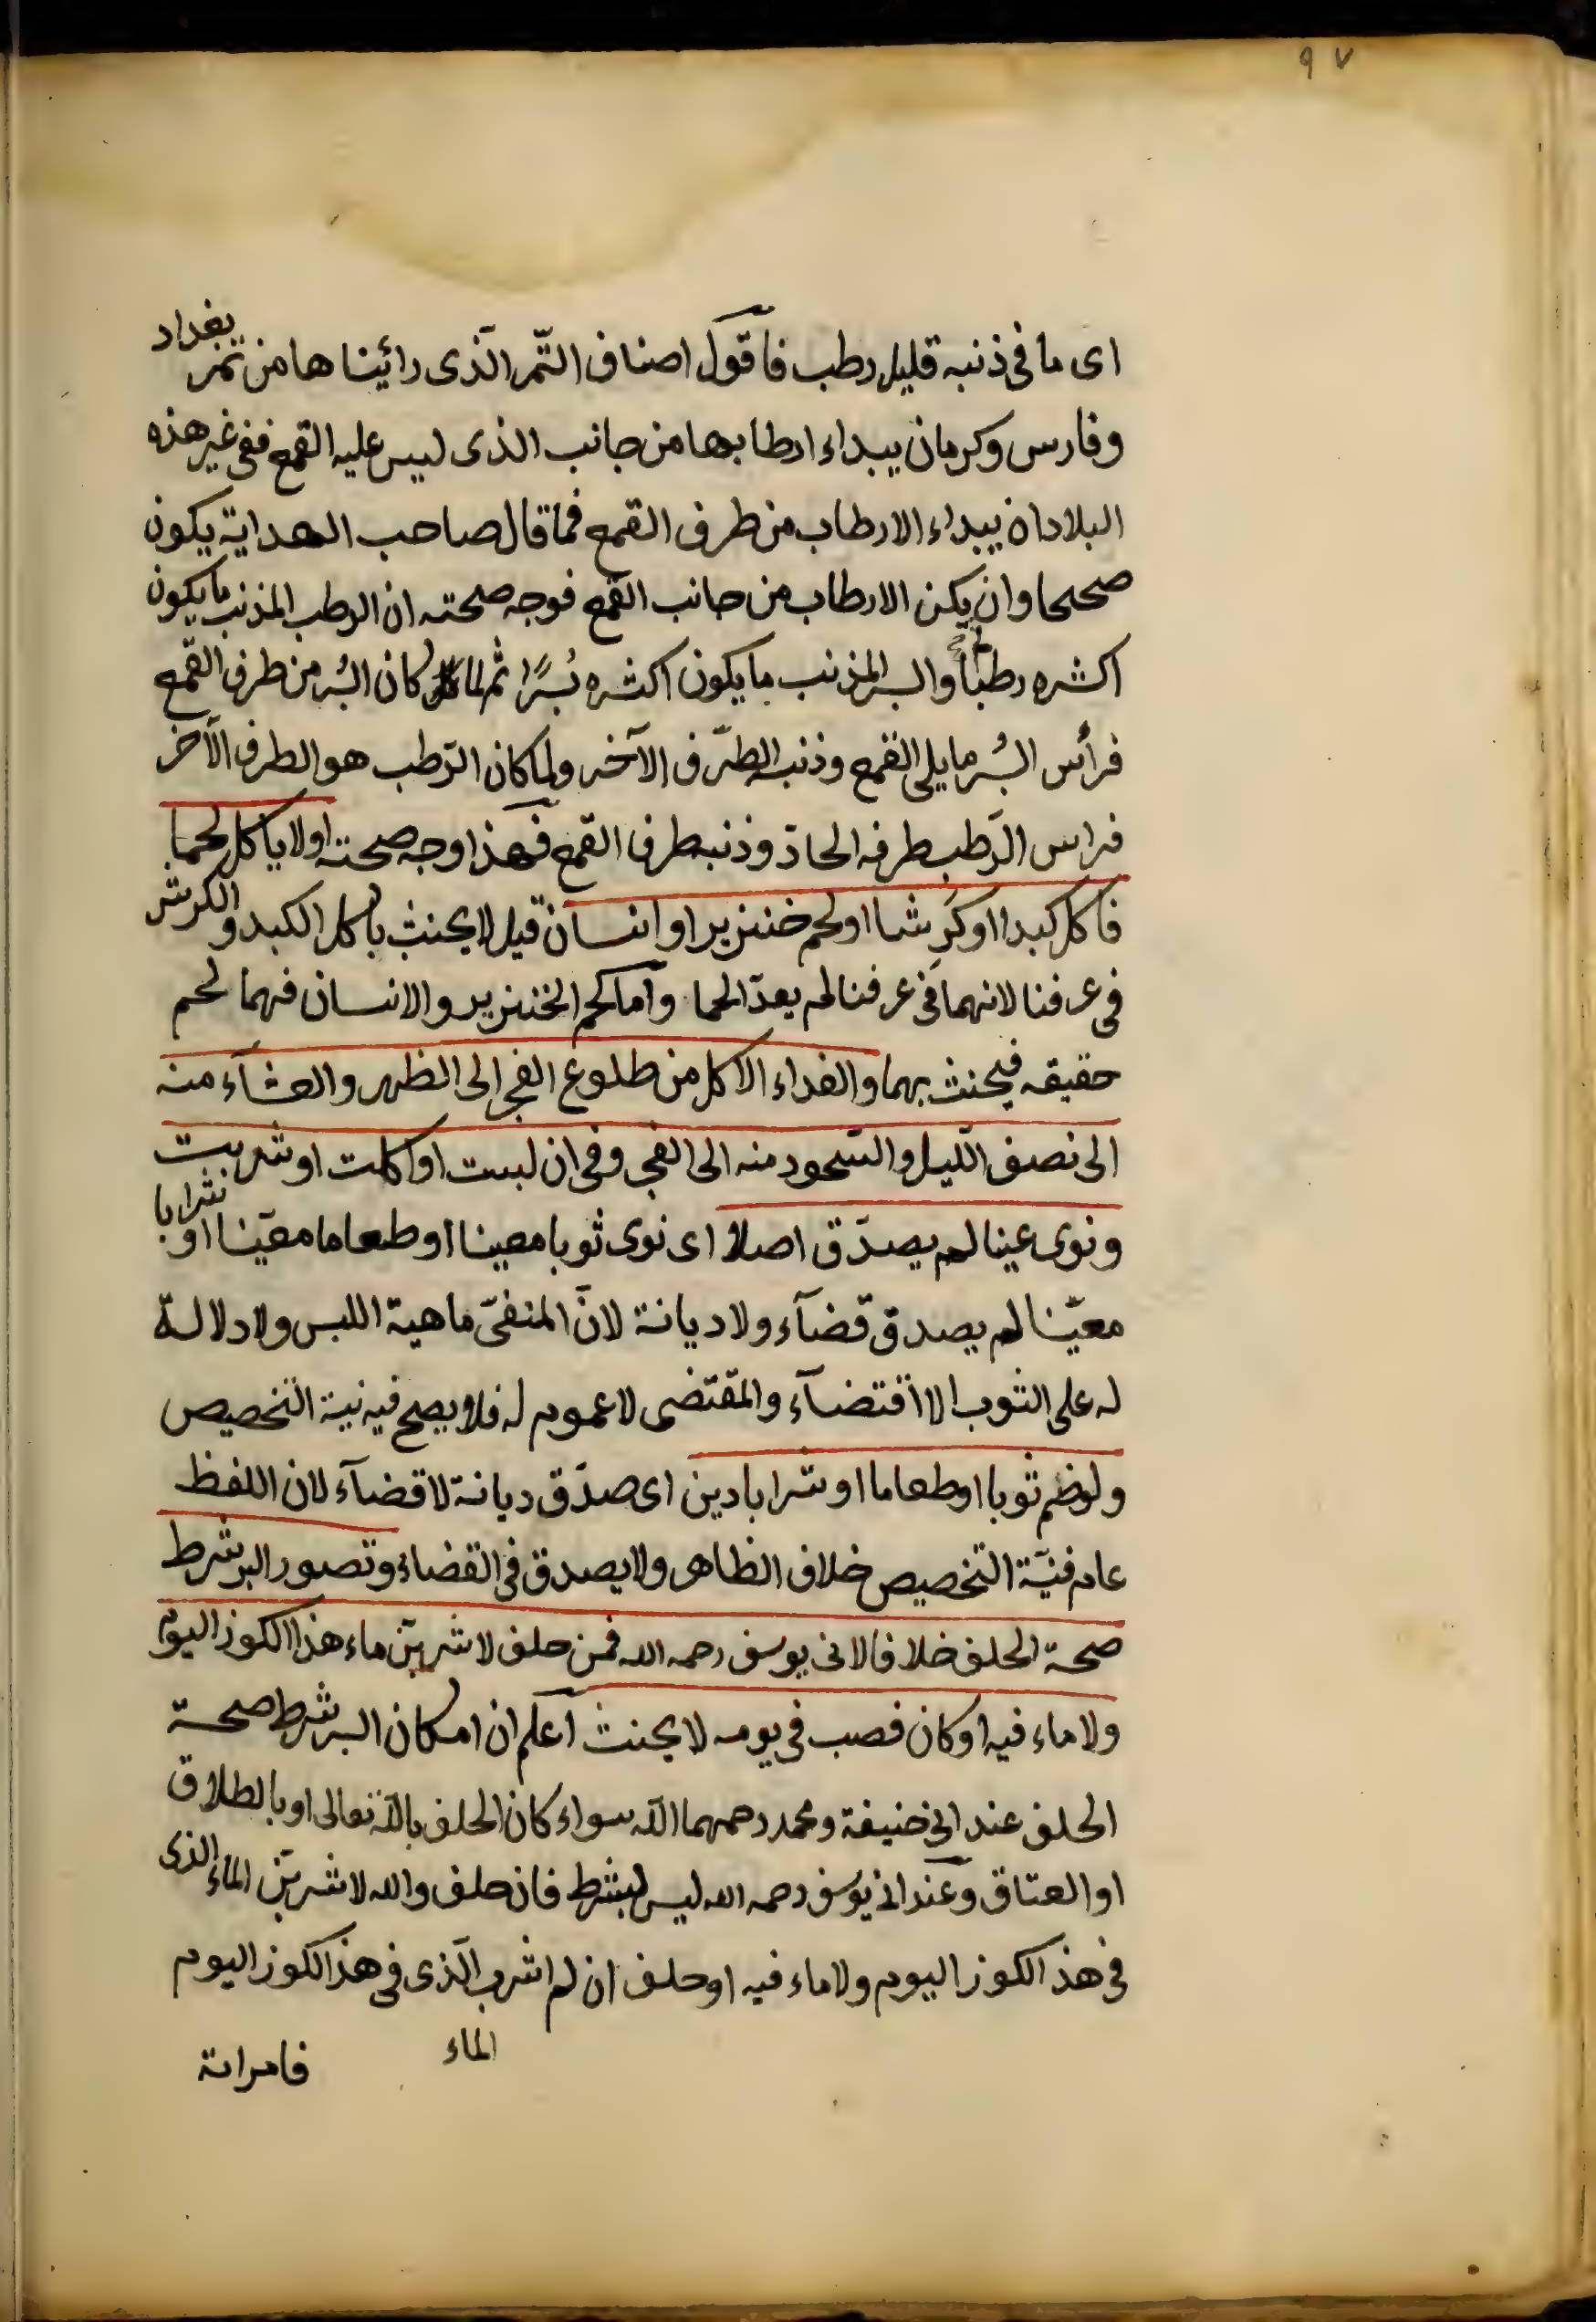 ٩٧
اى ما فى ذنبه قليل رطب فاقول اصناف التّمر الّذى رائينا ها من تمر بغداد
وفارس وكرمان يبداء ارطابها من جانب الذى ليس عليه القمع ففى غير هذه
البلاد ان يبداء الارطاب من طرف القمع فما قال صاحب الهداية يكون
صحيحا وان يكن الارطاب من جانب القمع فوجه صحته ان الرطب المذنب ما يكون
اكثره رطبًا والبسر المذنب ما يكون اكثره بُسرًا ثم لما كان البُسر من طرف القمع
فرأس البُسر ما يلى القمع وذنبه الطّرف الآخر ولما كان الرّطب هو الطرف الآخر
فراس الرّطب طرفه الحادّ وذنبه طرف القمع فهذا وجه صحته او لا ياكل لحما
فاكل كبدا او كرِشا او لحم خنزير او انسان قيل لا يحنث باكل الكبد والكرش
فى عرفنا لانهما فى عرفنا لم يعدّا لحما وأما لحم الخنزير والانسان فهما لحم
حقيقه فيحنث بهما والغداء الاكل من طلوع الفجر الى الظهر والعشآء منه
الى نصف اللّيل والسّحور منه الى الفجر وفى ان لبست او اكلت او شربت
ونوى عينا لم يصدّق اصلا اى نوى ثوبا معينا او طعاما معيّنا او شرابا
معيّنا لم يصدق قضآء ولا ديانة لانّ المنفىّ ماهية اللبس ولا دلالة
له على الثوب الا اقتضآء والمقتضى لا عموم له فلا يصح فيه نية التخصيص
ولو ضم ثوبا او طعاما او شرابا دين اى صدّق ديانة لا قضآء لان اللفظ
عام فنيّة التخصيص خلاف الظاهر ولا يصدق فى القضاء وتصور البر شرط
صحة الحلف خلافا لابى يوسف رحمه الله فمن حلف لاشربنّ ماء هذا الكوز اليوم
ولا ماء فيه او كان فصب فى يومه لا يحنث اعلم ان امكان البر شرط صحة
الحلف عند ابى حنيفة ومحمد رحمهما الله سواء كان الحلف بالله تعالى او بالطلاق
او العتاق وعند ابى يوسف رحمه الله ليس بشرط فان حلف والله لاشربنّ الماء الذى
فى هذ الكوز اليوم ولا ماء فيه او حلف ان لم اشرب الّذى فى هذ الكوز اليوم
الماء
فامراته